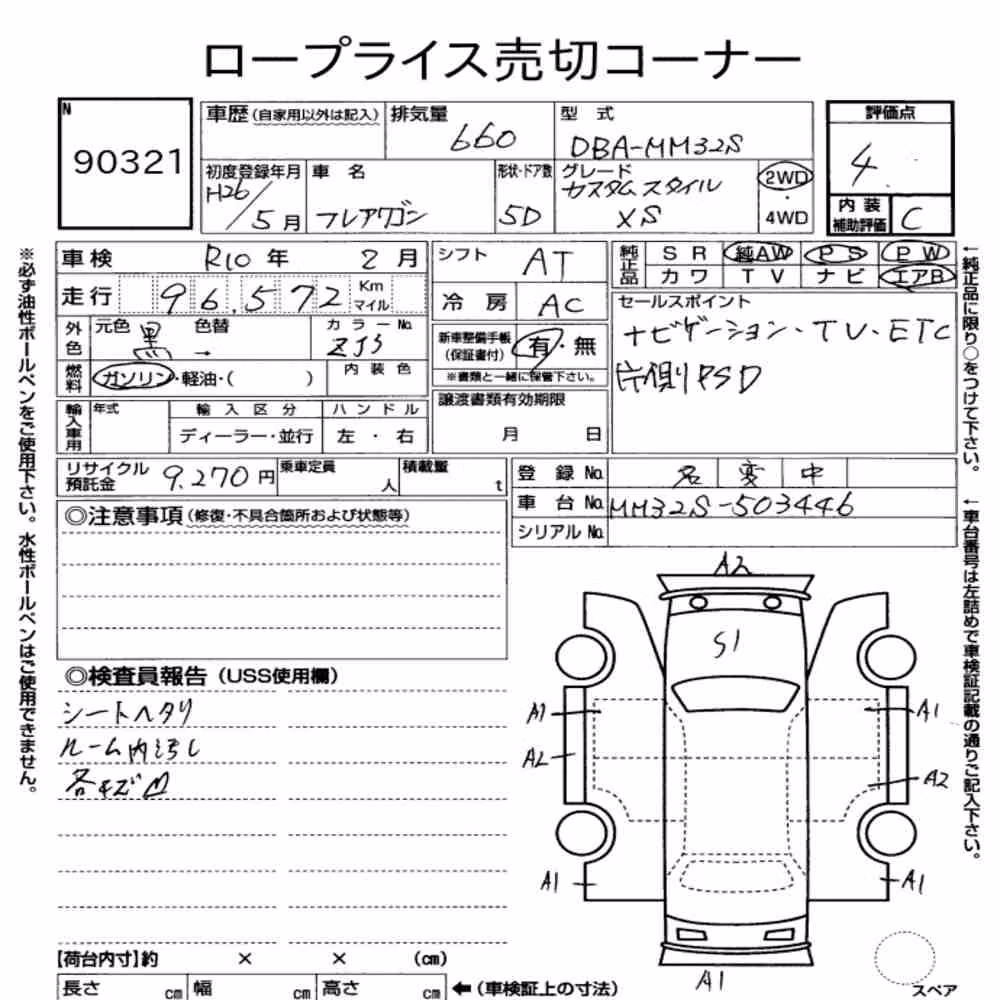 ロープライス売切コーナー
N
90321
車歴(自家用以外は記入)
排気量
660
型式
DBA-MM32S
評価点
4
初度登録年月
H26/5月
車名
フレアワゴン
形状・ドア数
5D
グレード
カスタムスタイル
XS
2WD
・
4WD
内装
補助評価
C
※必ず油性ボールペンをご使用下さい。水性ボールペンはご使用できません。
車検
R10年 2月
シフト
AT
純正品
SR 純AW PS PW
カワ TV ナビ エアB
走行
96,572
Km
マイル
冷房
AC
セールスポイント
ナビゲーション・TV・ETC
片側PSD
外色
元色
黒
色替
→
カラーNo.
ZJ3
新車整備手帳
(保証書付)
有・無
※書類と一緒に保管下さい。
燃料
ガソリン・軽油・( )
内装色
輸入車用
年式
輸入区分
ハンドル
ディーラー・並行
左・右
譲渡書類有効期限
月 日
リサイクル
預託金
9,270円
乗車定員
人
積載量
t
登録No.
名変中
車台No.
MM32S-503446
シリアルNo.
←純正品に限り○をつけて下さい。
←車台番号は左詰めで車検証記載の通りご記入下さい。
◎注意事項(修復・不具合箇所および状態等)
◎検査員報告(USS使用欄)
シートヘタリ
ルーム内汚し
各キズ凹
A2
S1
A1
A1
A2
A2
A1
A1
A1
スペア
【荷台内寸】約 × × (cm)
長さ cm 幅 cm 高さ cm
←(車検証上の寸法)